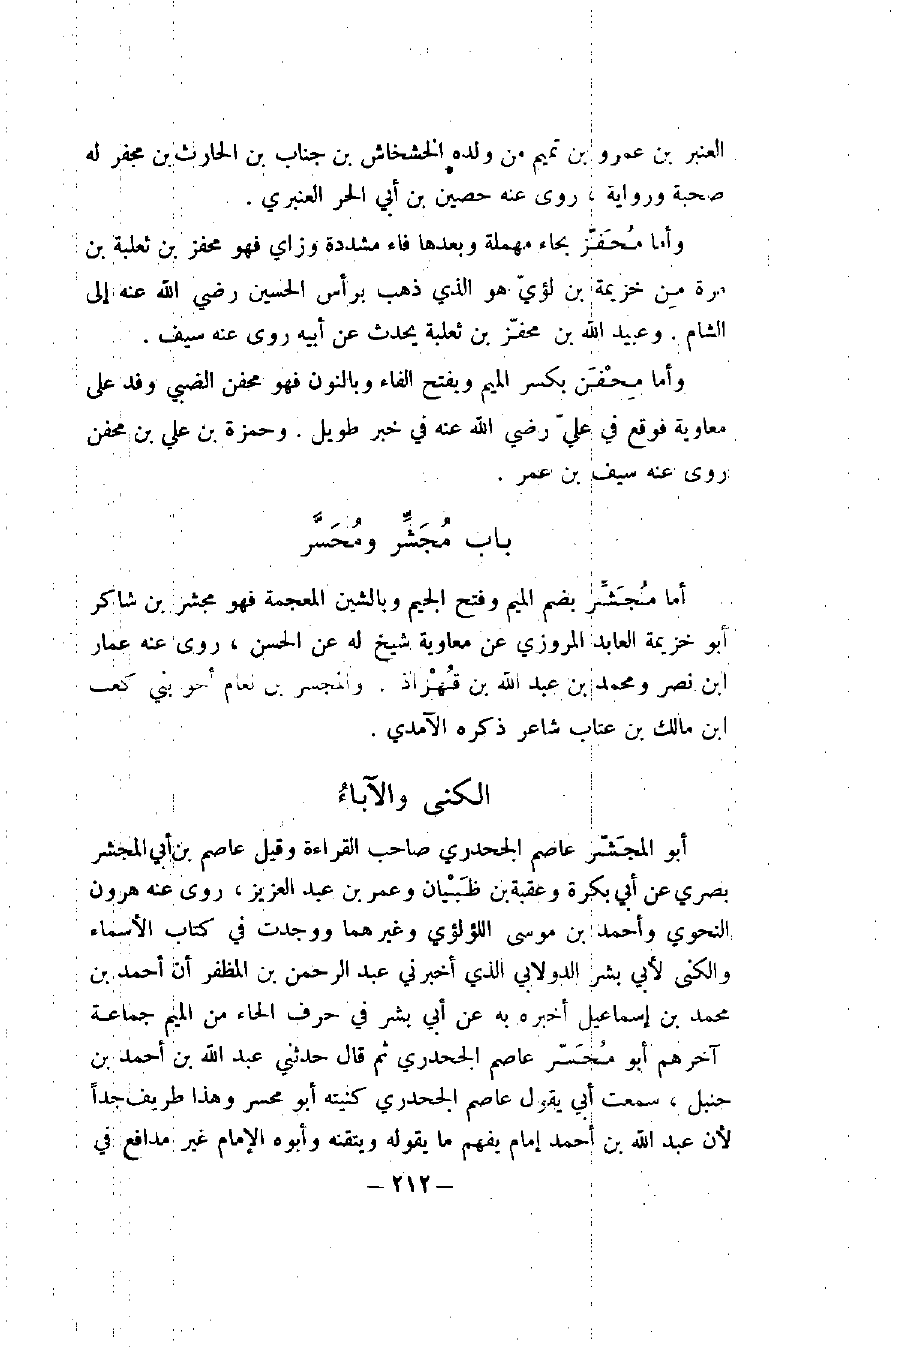 العنبر بن عمرو بن تميم من ولده الخشخاش بن جناب بن الحارث بن مجفر له
صحبة ورواية ، روى عنه حصين بن أبي الحر العنبري .
وأما مُحَفّز بحاء مهملة وبعدها فاء مشددة وزاي فهو محفز بن ثعلبة بن
مرة من خزيمة بن لؤيّ هو الذي ذهب برأس الحسين رضي الله عنه إلى
الشام . وعبيد الله بن محفّز بن ثعلبة يحدث عن أبيه روى عنه سيف .
وأما مِحْفَن بكسر الميم وبفتح الفاء وبالنون فهو محفن الضبي وفد على
معاوية فوقع في عليّ رضي الله عنه في خبر طويل . وحمزة بن علي بن محفن
روى عنه سيف بن عمر .
باب مُجَشِّر ومُحَسَّر
أما مُجَشَّر بضم الميم وفتح الجيم وبالشين المعجمة فهو مجشر بن شاكر
أبو خزيمة العابد المروزي عن معاوية شيخ له عن الحسن ، روى عنه عمار
ابن نصر ومحمد بن عبد الله بن قُهْزاذ . والمجسر بن نعام أخو بني كعب
ابن مالك بن عتاب شاعر ذكره الآمدي .
الكنى والآباءُ
أبو المجَشّر عاصم الجحدري صاحب القراءة وقيل عاصم بن أبي المجشر
بصري عن أبي بكرة وعقبة بن ظَبْيان وعمر بن عبد العزيز ، روى عنه هرون
النحوي وأحمد بن موسى اللؤلؤي وغيرهما ووجدت في كتاب الأسماء
والكنى لأبي بشر الدولابي الذي أخبرني عبد الرحمن بن المظفر أن أحمد بن
محمد بن إسماعيل أخبره به عن أبي بشر في حرف الحاء من الميم جماعة
آخرهم أبو مُحَسّر عاصم الجحدري ثم قال حدثني عبد الله بن أحمد بن
حنبل ، سمعت أبي يقول عاصم الجحدري كنيته أبو محسر وهذا طريف جداً
لأن عبد الله بن أحمد إمام يفهم ما يقوله ويتقنه وأبوه الإمام غير مدافع في
– ٢١٢ –